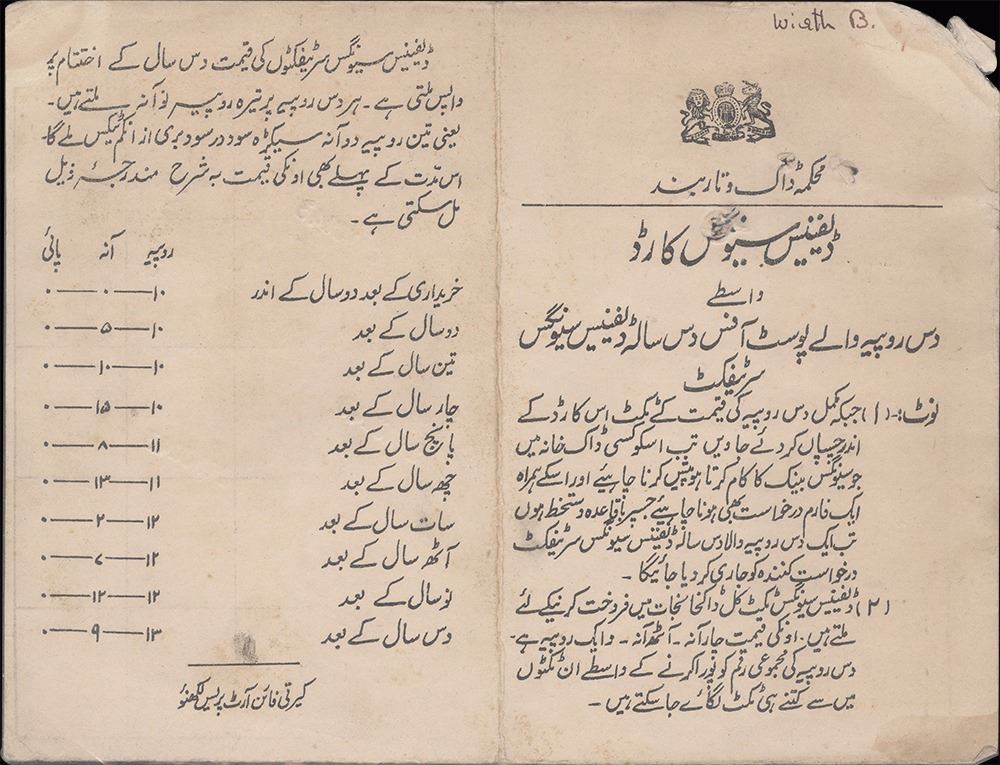 Wirth B.
محکمہ ڈاک و تار ہند
ڈیفینیس سیونگس کارڈ
واسطے
دس روپیہ والے پوسٹ آفس دس سالہ ڈیفینیس سیونگس
سرٹیفکٹ
نوٹ:- (۱) جبکہ مکمل دس روپیہ کی قیمت کے ٹکٹ اس کارڈ کے
اندر چسپاں کردئے جاویں تب اسکو کسی ڈاک خانہ میں
جو سیونگس بینک کا کام کرتا ہو پیش کرنا چاہیے اور اسکے ہمراہ
ایک فارم درخواست بھی ہونا چاہیے جسپر باقاعدہ دستخط ہوں
تب ایک دس روپیہ والا دس سالہ ڈیفینس سیونگس سرٹیفکٹ
درخواست کنندہ کو جاری کردیا جائیگا -
(۲) ڈیفینیس سیونگس ٹیکٹ کل ڈاکخانجات میں فروخت کرنیکے لئے
ملتے ہیں. اونکی قیمت چار آنہ - آٹھ آنہ - و ایک روپیہ ہے.
دس روپیہ کی مجموعی رقم کو پورا کرنے کے واسطے ان ٹکٹوں
میں سے کتنے ہی ٹکٹ لگائے جاسکتے ہیں -
ڈیفینیس سیونگس سرٹیفکٹوں کی قیمت دس سال کے اختتام پر
واپس ملتی ہے - ہر دس روپیہ پر تیرہ روپیہ نو آنہ ملتے ہیں -
یعنی تین روپیہ دو آنہ سیکڑہ سود در سود بری از انکم ٹیکس ملے گا -
اس مدّت کے پہلے بھی اونکی قیمت بہ شرح مندرجۂ ذیل
مل سکتی ہے -
روپیہ آنہ پائی
خریداری کے بعد دو سال کے اندر ۱۰—۰—۰
دو سال کے بعد ۱۰—۵—۰
تین سال کے بعد ۱۰—۱۰—۰
چار سال کے بعد ۱۰—۱۵—۰
پانچ سال کے بعد ۱۱—۸—۰
چھ سال کے بعد ۱۱—۱۳—۰
سات سال کے بعد ۱۲—۲—۰
آٹھ سال کے بعد ۱۲—۷—۰
نو سال کے بعد ۱۲—۱۲—۰
دس سال کے بعد ۱۳—۹—۰
کیرتی فائن آرٹ پریس لکھنؤ